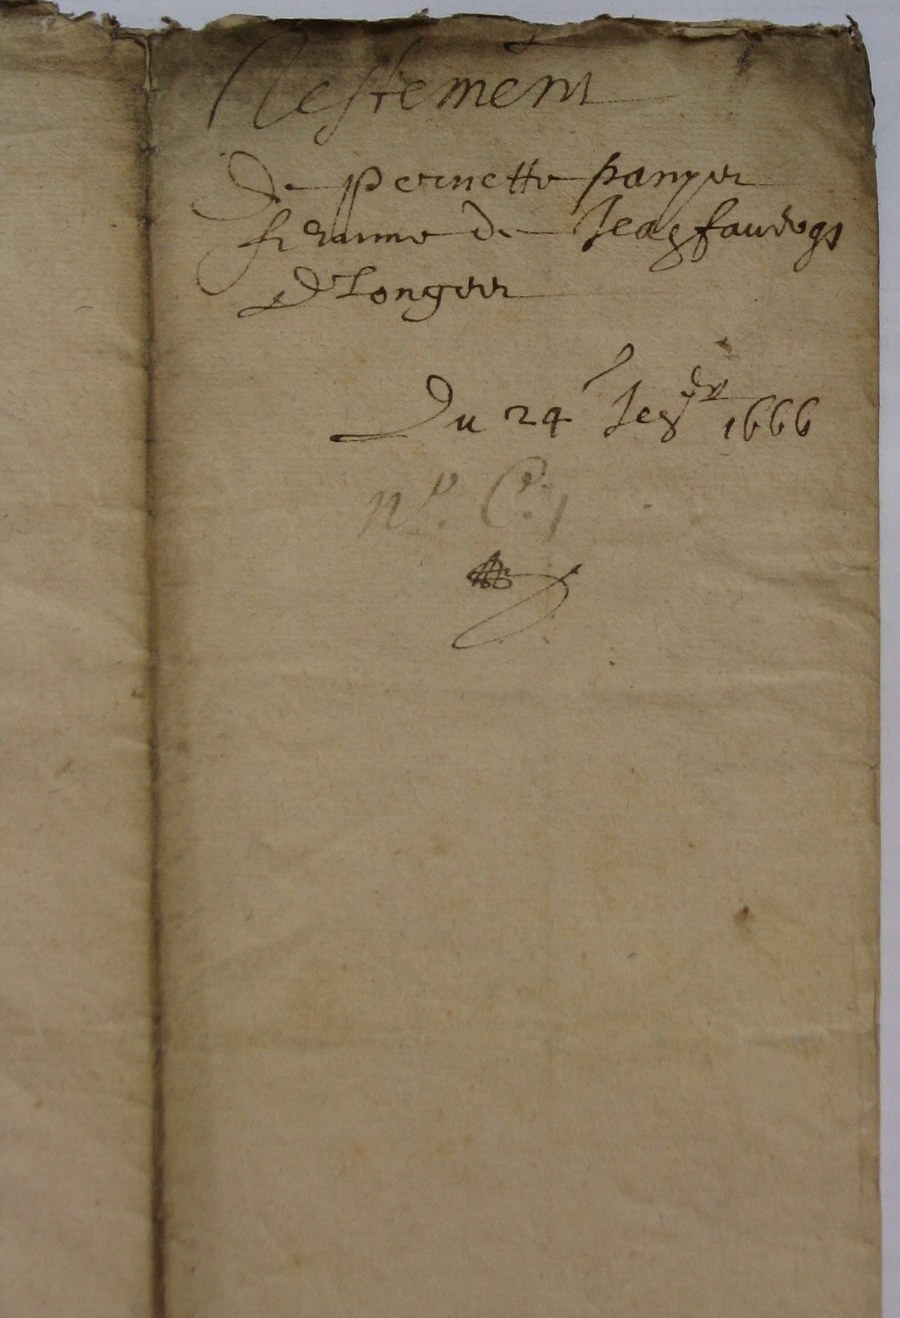 Testement
De pernette panyer
femme de Jean
D Longever
Du 24 Jer 1666
nº. C. 1